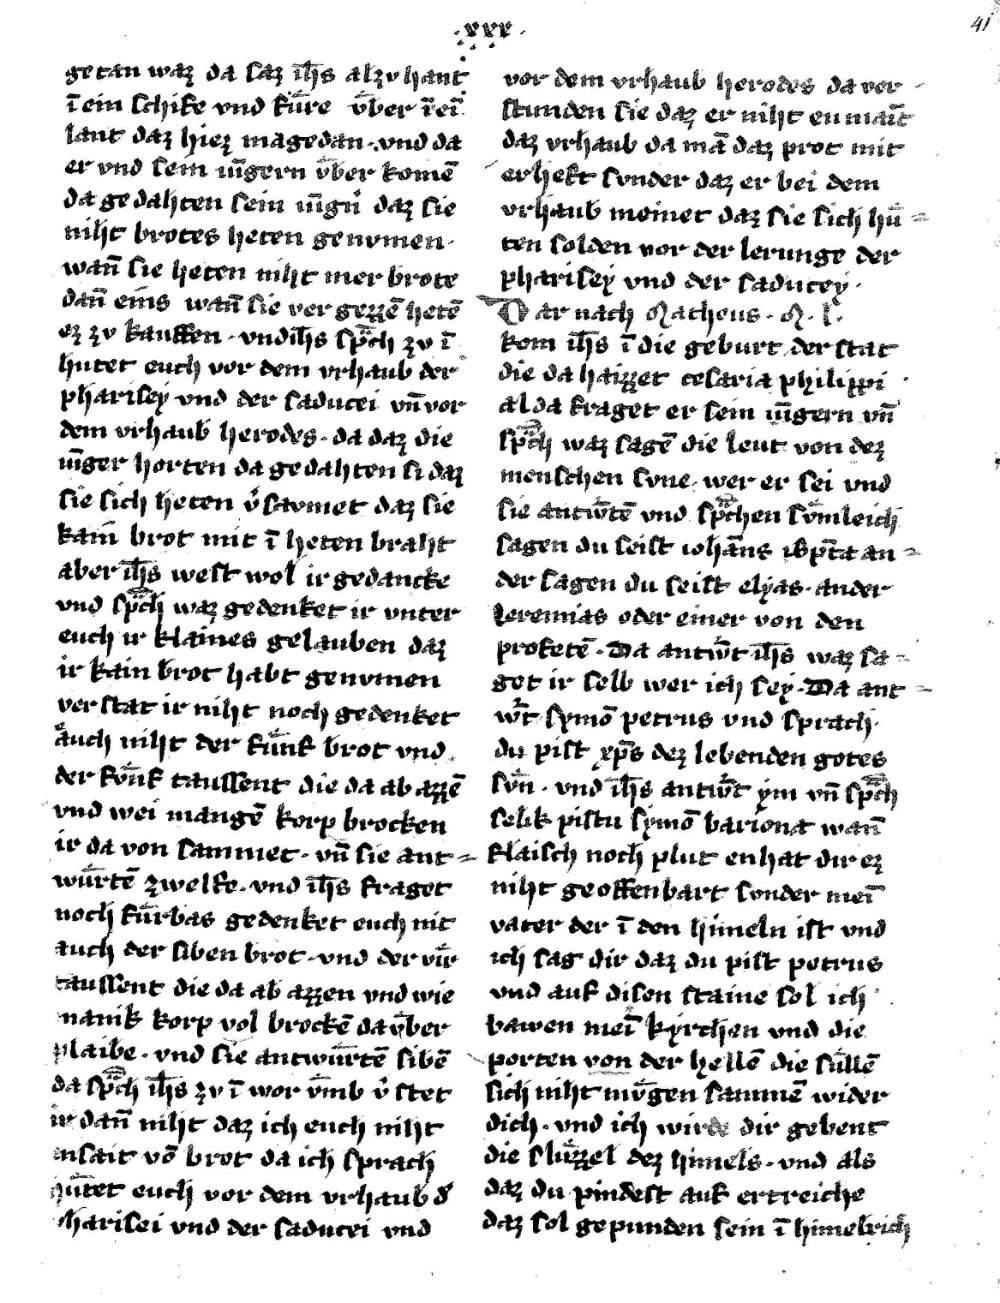 ·xxx·
41
getan waz da saz ih̅s alzvhant
i̅ ein schife vnd fu̅re v̆ber i̅ ei̅
lant daz hiez magedan · vnd da
er vnd sein iu̅gern v̆ber kome̅
da gedahten sein iu̅gn̅ daz sie
niht brotes heten genvmen ·
wan̅ sie heten niht mer brote
dan̅ eins wan̅ sie vergezze̅ hete̅
ez zv kauffen · vnd ih̅s spͣch zv i̅
hutet euch vor dem vrhaub der
pharisey vnd der saducei vn̅ vor
dem vrhaub herodes · da daz die
iu̅ger horten da gedahten si daz
sie sich heten v̾savmet daz sie
kain̅ brot mit i̅ heten braht
aber ih̅s west wol ir gedancke
vnd spͣch waz gedenket ir vnter
euch ir klaines gelauben daz
ir kain brot habt genvmen
verstat ir niht noch gedenket
auch niht der fu̅nf brot vnd
der fv̆nf taussent die da ab azze̅
vnd wei mange̅ korp brocken
ir da von sammet · vn̅ sie ant=
wu̅rte̅ zwelfe · vnd ih̅s fraget
noch fu̅rbas gedenket euch nit
auch der siben brot · vnd der vir̅
taussent die da ab azzen vnd wie
manik korp vol brocke̅ da v̆ber
plaibe · vnd sie antwu̅rte̅ sibe̅
da spͣch ih̅s zv i̅ worv̅mb v̾stet
ir dan̅ niht daz ich euch niht
ensait vo̅ brot da ich sprach
hu̅tet euch vor dem vrhaub d̾
pharisei vnd der saducei vnd
vor dem vrhaub herodes da ver-
stunden sie daz er niht enmait̅
daz vrhaub da ma̅ daz prot mit
erheft svnder daz er bei dem
vrhaub meinet daz sie sich hu̅=
ten solden vor der lerunge der
pharisey vnd der saducey ·
Dar nach Matheus · M · l ·
kom ih̅s i̅ die geburt der stat
die da haizzet cesaria philippi
alda fraget er sein iu̅gern vn̅
spͣch waz sage̅ die leut von dez
menschen svne · wer er sei vnd
sie antw̾te̅ vnd spͣchen sv̅mleich
sagen du seist ioha̅ns bp̅ta an=
der sagen du seist elyas · ander
Jeremias oder einer von den
profete̅ · Da antw̾t ih̅s waz sa=
get ir selb wer ich sey · Da ant=
w̾t symo̅ petrus vnd sprach
du pist xp̅s dez lebenden gotes
sv̅n · vnd ih̅s antw̾t ym vn̅ spͣch
selik pistu symo̅ bariona wan̅
flaisch noch plut enhat dir ez
niht geoffenbart sonder mei̅
vater der i̅ den himeln ist vnd
ich sag dir daz du pist petrus
vnd auf disen staine sol ich
bawen mei̅ kyrchen vnd die
porten von der helle̅ die sulle̅
sich niht mv̆gen samme̅ wider
dich · vnd ich wirde dir gebent
die sluzzel dez himels · vnd als
daz du pindest auf ertreiche
daz sol gepunden sein i̅ himelrich